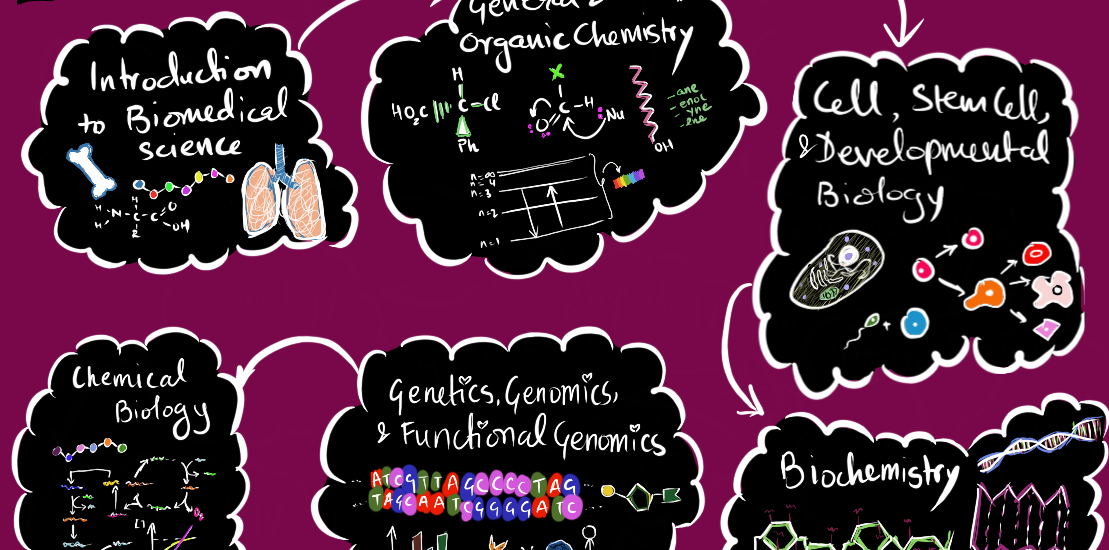 Introduction
to Biomedical
science
H H N - H C 2 - C O OH
General &
Organic Chemistry
H
HO₂C C -Cl
Ph
X
C -H
O
Nu
OH
-ane
-enol
-yne
-ene
n=∞
n=4
n=3
n=2
n=1
Cell, Stem Cell,
& Developmental
Biology
Chemical
Biology
Genetics, Genomics,
& Functional Genomics
ATCGTTAGCCCCTAG
TAGCAATCGGGGATC
Biochemistry